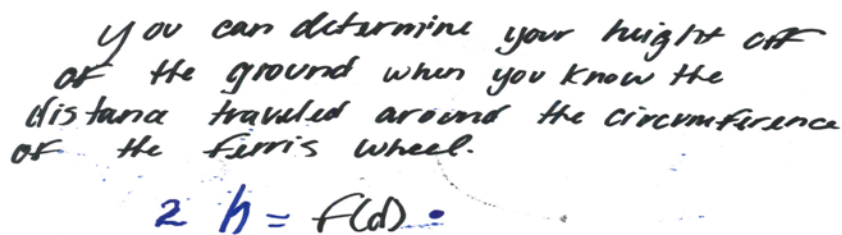 you can determine your height off
of the ground when you know the
distance traveled around the circumference
of the ferris wheel.
2 h = f(d).